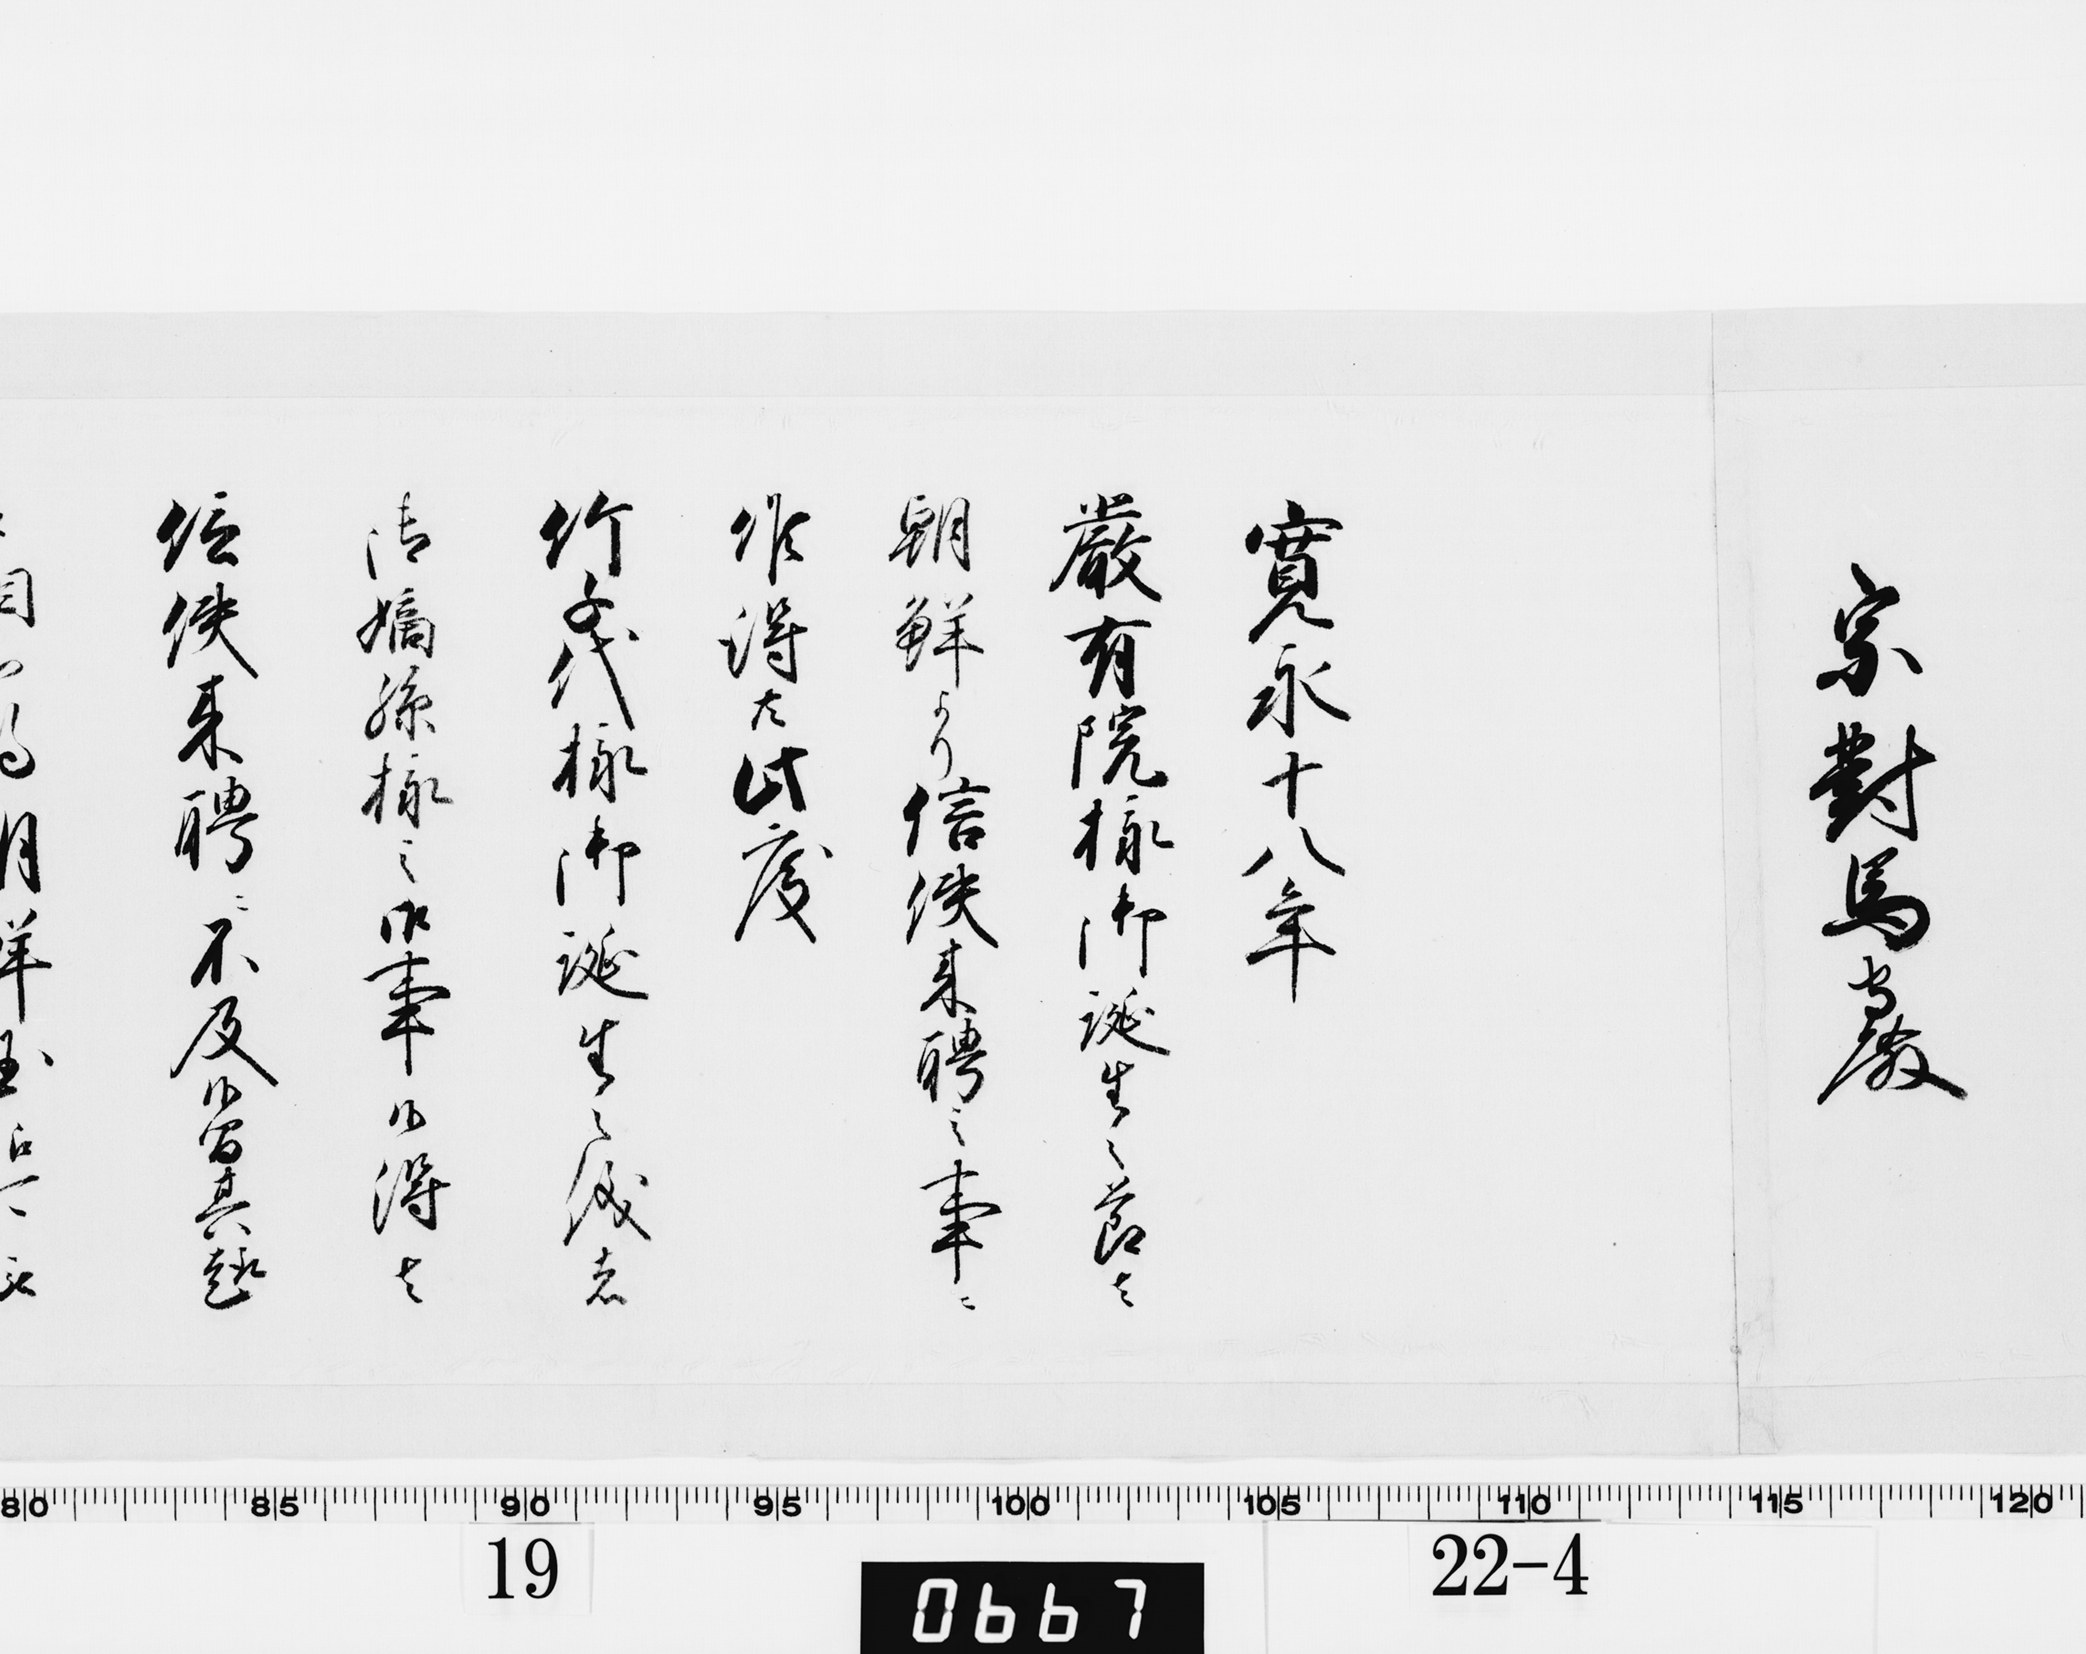 宗對馬守殿
寛永十八年
嚴有院様御誕生之節者
朝鮮より信使来聘之事ニ
候得共此度
竹千代様御誕生之儀者
御嫡孫様之御事候得者
信使来聘ニ不及候間其趣
80 85 90 95 100 105 110 115 120
19
0667
22-4